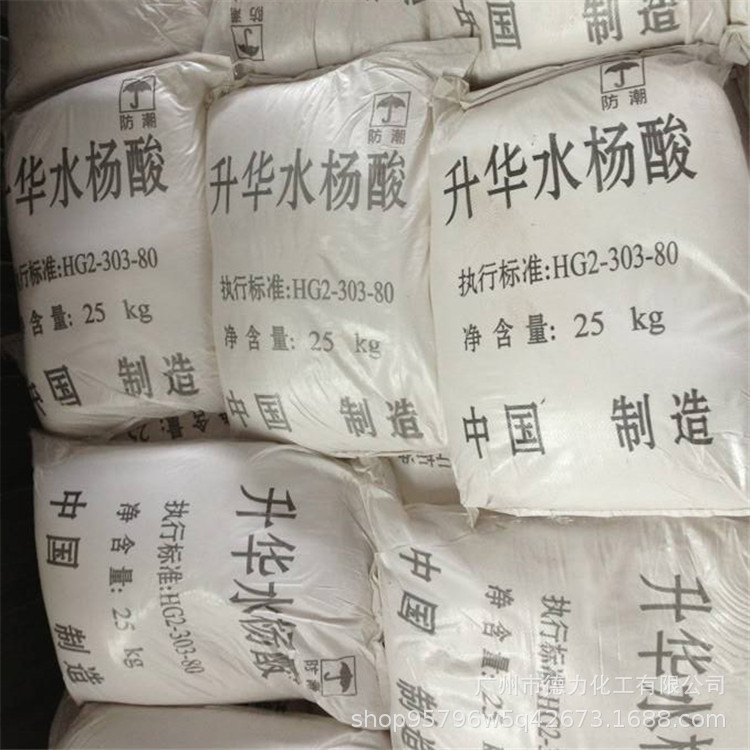 防潮
中国 制造
防潮
升华水杨酸
执行标准:HG2-303-80
净含量: 25 kg
中国 制造
防潮
升华水杨酸
执行标准:HG2-303-80
净含量: 25 kg
中国 制造
防潮
升华水杨酸
执行标准:HG2-303-80
净含量: 25 kg
中国 制造
升华水杨酸
防潮
执行标准:HG2-303-80
净含量: 25 kg
中国 制造
升华水杨
执行标准:HG2-303
净含量: 25
中国 制造
广州市德力化工有限公司
shop95796w5q42673.1688.com